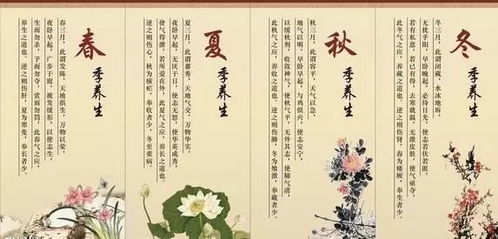 春
季养生
春三月，此谓发陈，天地俱生，万物以荣，
夜卧早起，广步于庭，被发缓形，以使志生，
生而勿杀，予而勿夺，赏而勿罚，此春气之应，
养生之道也，逆之则伤肝，夏为寒变，奉长者少。
夏
季养生
夏三月，此谓蕃秀，天地气交，万物华实，
夜卧早起，无厌于日，使志无怒，使华英成秀，
使气得泄，若所爱在外，此夏气之应，养长之道也，
逆之则伤心，秋为痎疟，奉收者少，冬至重病。
秋
季养生
秋三月，此谓容平，天气以急，
地气以明，早卧早起，与鸡俱兴，使志安宁，
以缓秋刑，收敛神气，使秋气平，无外其志，使肺气清，
此秋气之应，养收之道也，逆之则伤肺，冬为飧泄，奉藏者少。
冬
季养生
冬三月，此谓闭藏，水冰地坼，
无扰乎阳，早卧晚起，必待日光，使志若伏若匿，
若有私意，若已有得，去寒就温，无泄皮肤，使气亟夺，
此冬气之应，养藏之道也，逆之则伤肾，春为痿厥，奉生者少。